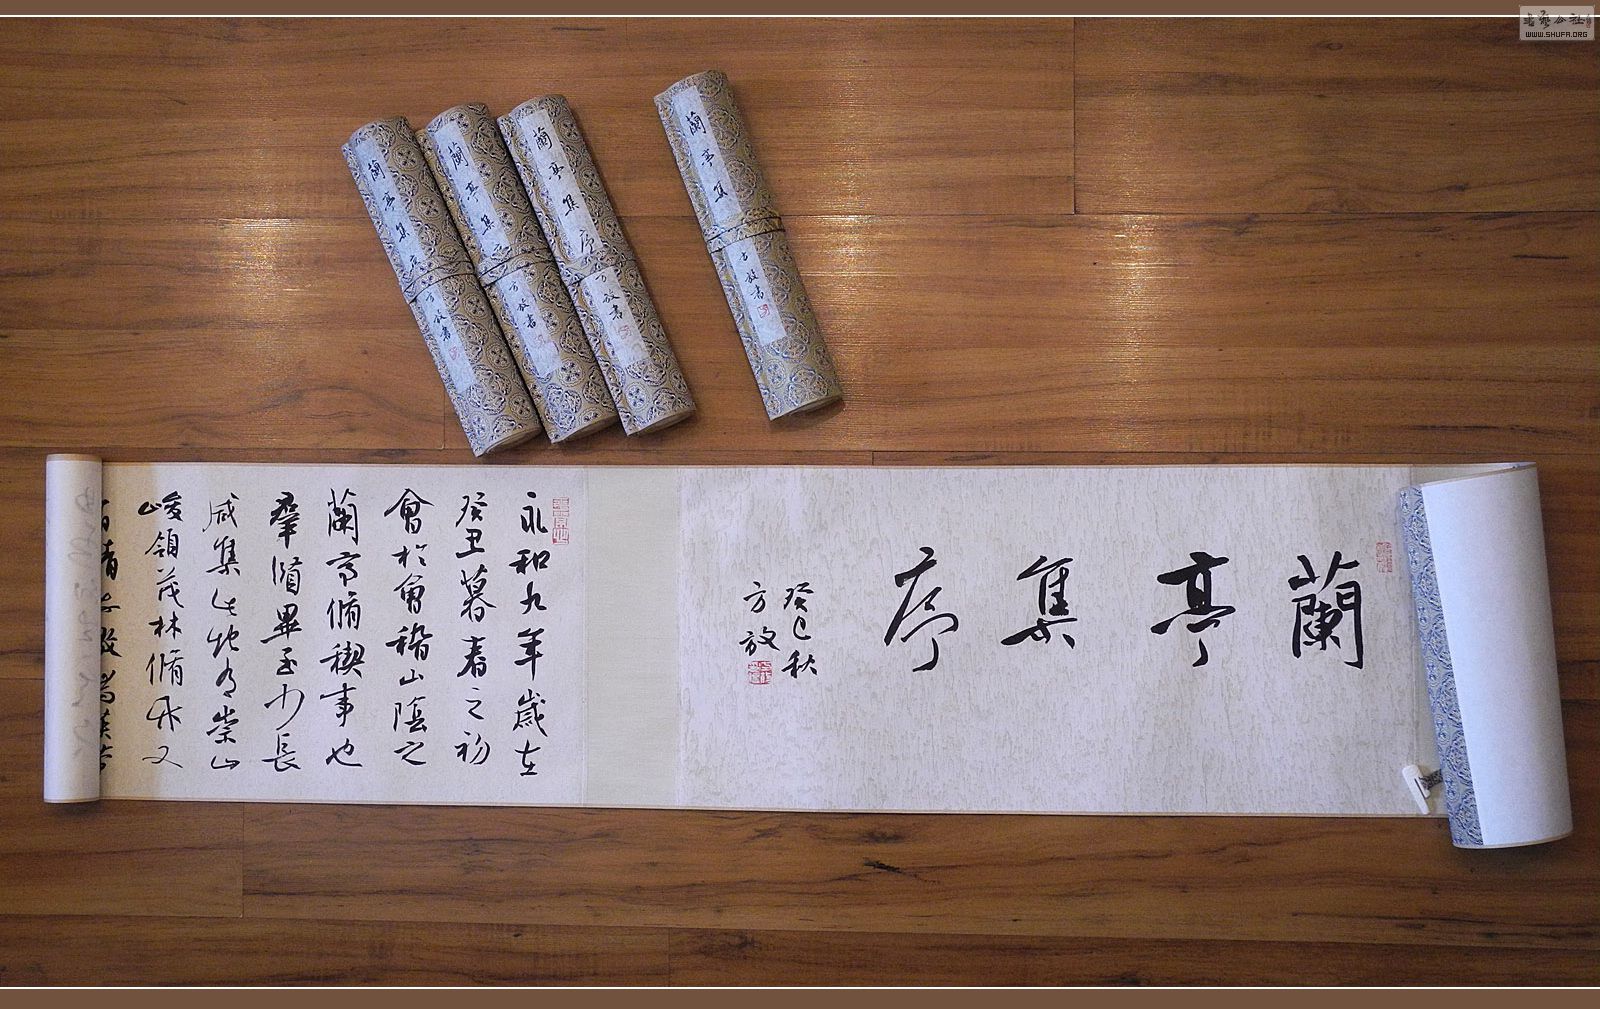 蘭亭集序
癸巳秋
方放
永和九年歲在
癸丑暮春之初
會於會稽山陰之
蘭亭脩稧事也
羣賢畢至少長
咸集此地有崇山
峻領茂林脩竹又
蘭亭集序
方放書
蘭亭集序
方放書
蘭亭集序
方放書
蘭亭集
方放書
書藝公社
WWW.SHUFA.ORG